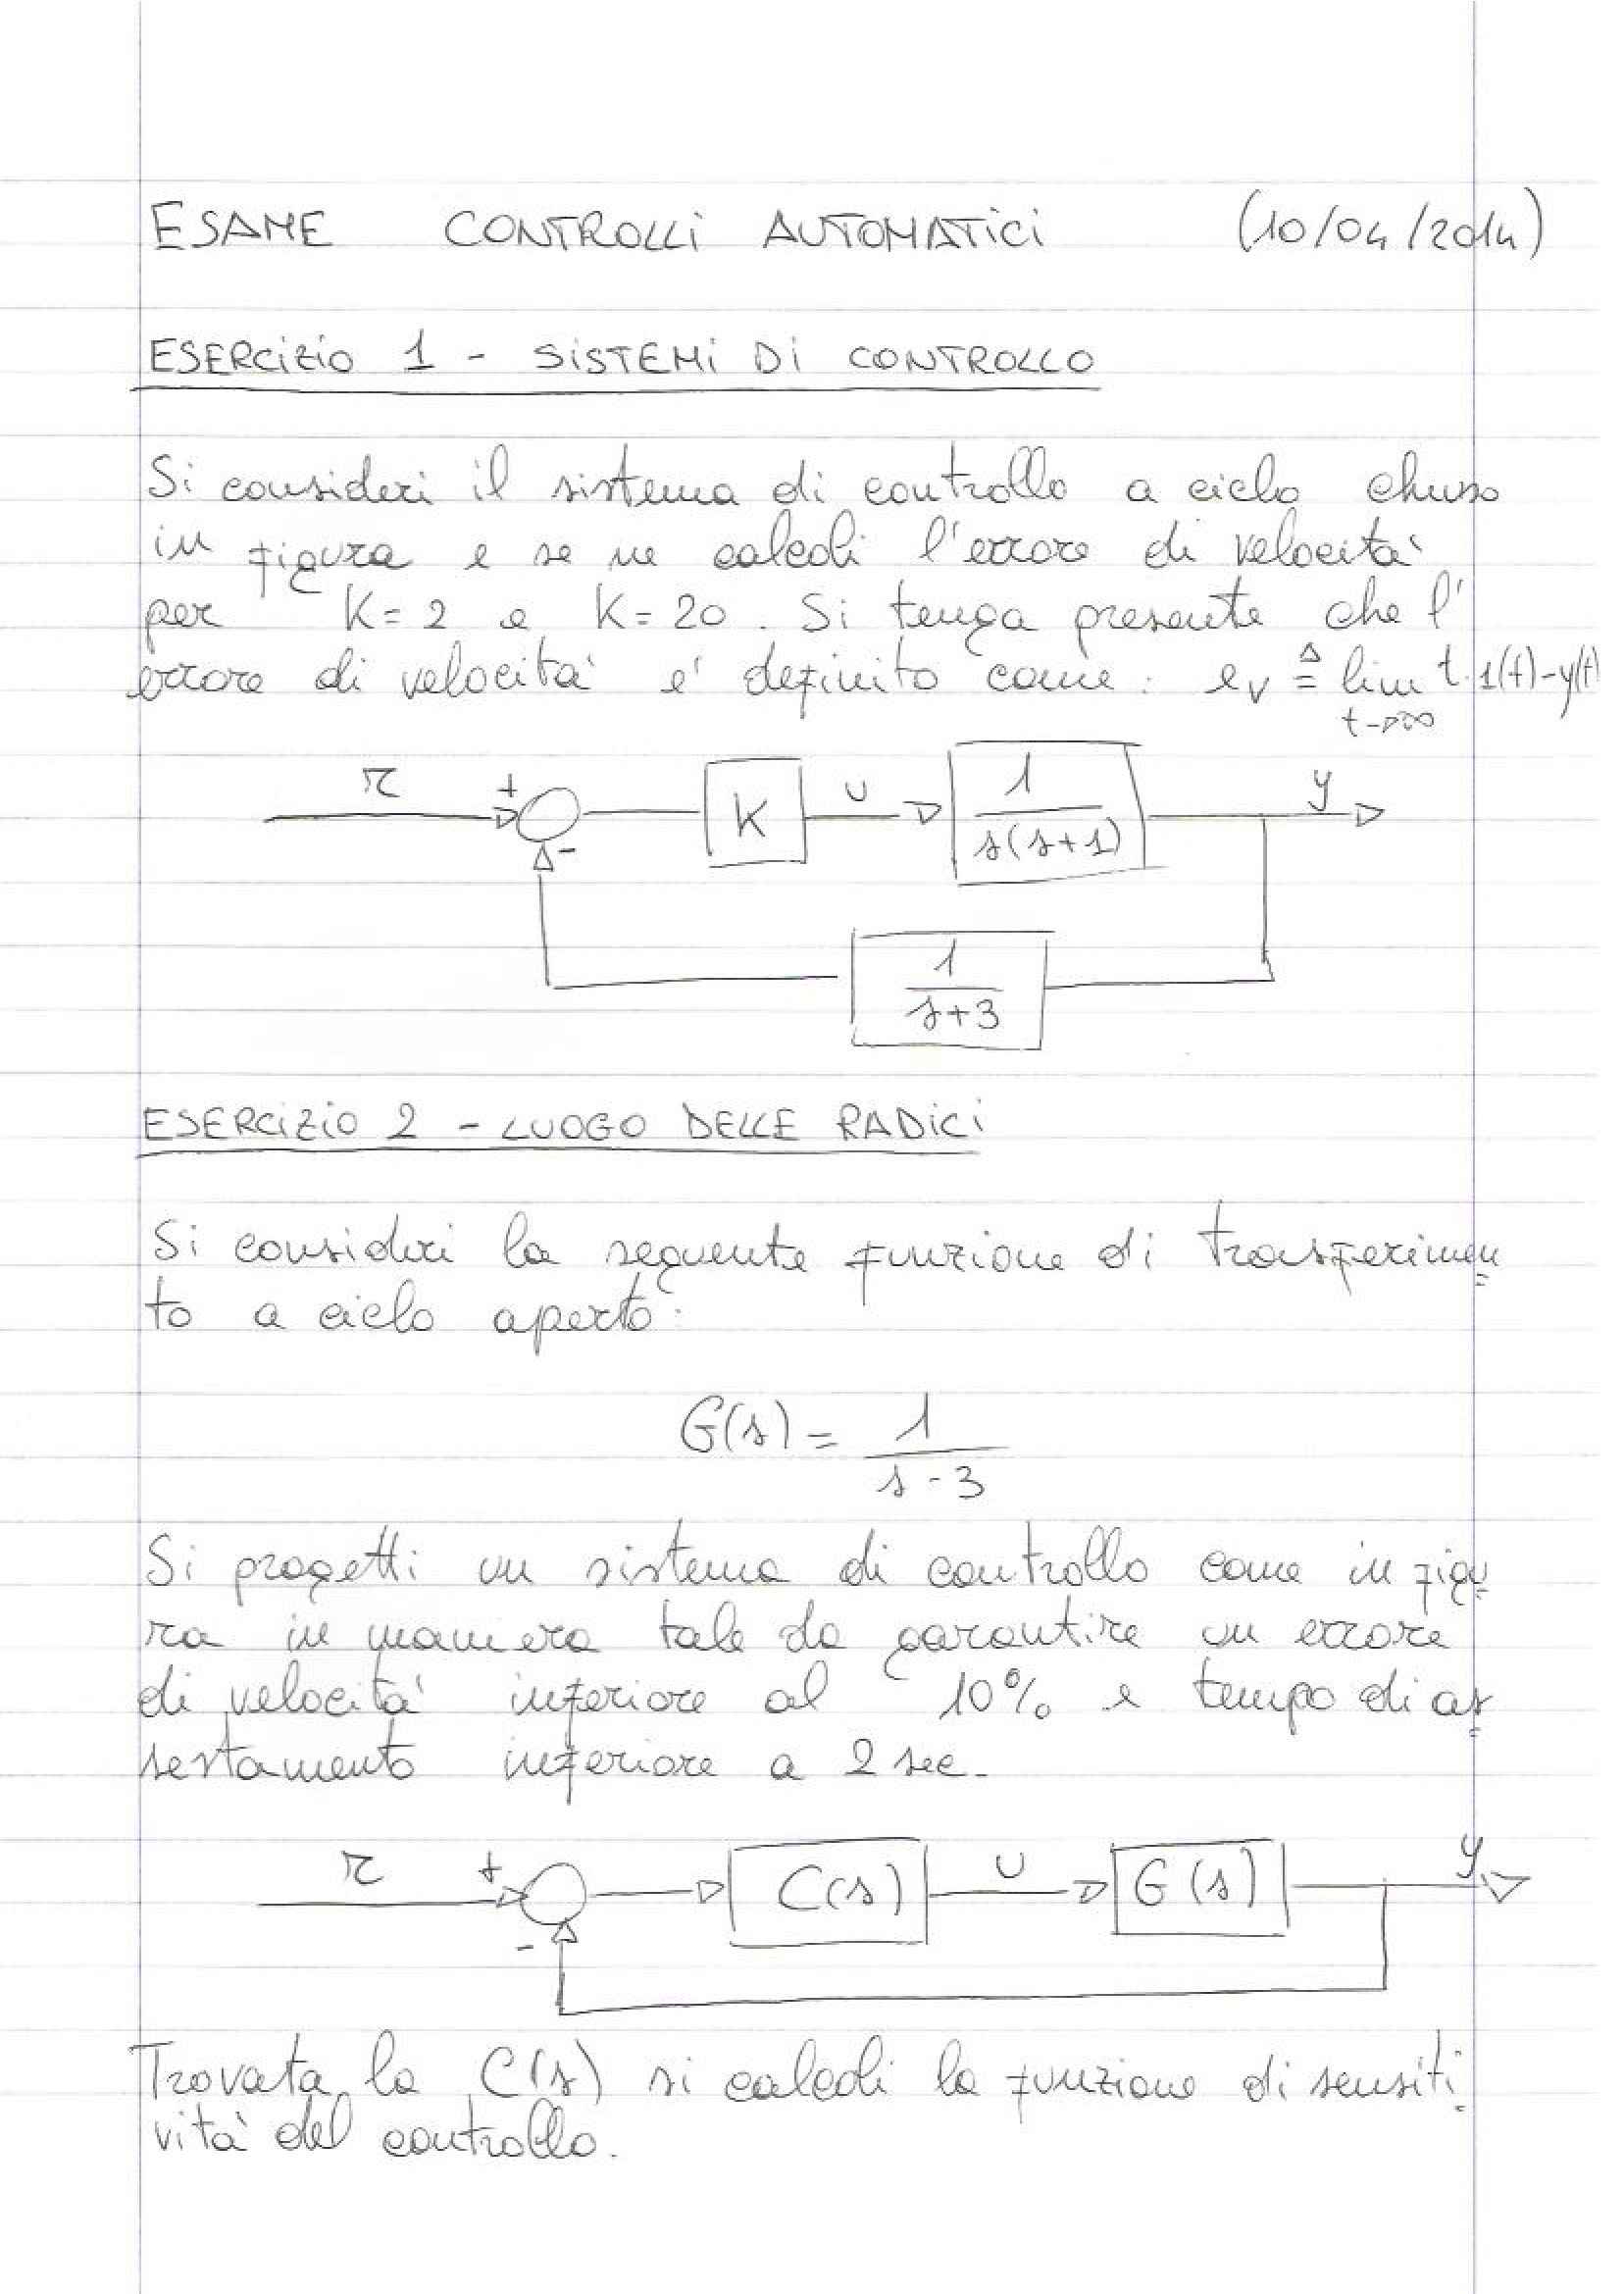 ESAME CONTROLLI AUTOMATICI (10/04/2014)
ESERCIZIO 1 - SISTEMI DI CONTROLLO
Si consideri il sistema di controllo a ciclo chiuso
in figura e se ne calcoli l'errore di velocità
per K=2 e K=20. Si tenga presente che l'
errore di velocità e' definito come: e_v ≜ lim t·1(t)-y(t)
t→∞
r + K u 1/(s(s+1)) y
-
1/(s+3)
ESERCIZIO 2 - LUOGO DELLE RADICI
Si consideri la seguente funzione di trasferimen
to a ciclo aperto:
G(s) = 1/(s-3)
Si progetti un sistema di controllo come in figu
ra in maniera tale da garantire un errore
di velocità inferiore al 10% e tempo di as
sestamento inferiore a 2 sec.
r + C(s) u G(s) y
-
Trovata la C(s) si calcoli la funzione di sensiti
vità del controllo.